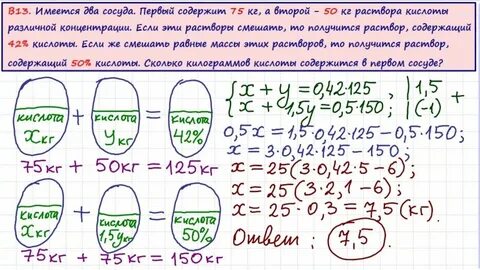 В13. Имеется два сосуда. Первый содержит 75 кг, а второй - 50 кг раствора кислоты
различной концентрации. Если эти растворы смешать, то получится раствор, содержащий
42% кислоты. Если же смешать равные массы этих растворов, то получится раствор,
содержащий 50% кислоты. Сколько килограммов кислоты содержится в первом сосуде?
кислота xкг + кислота yкг = кислота 42%
75кг + 50кг = 125кг
кислота xкг + кислота 1,5yкг = кислота 50%
75кг + 75кг = 150кг
{x + y = 0,42·125 | 1,5
x + 1,5y = 0,5·150; | (-1) +
0,5x = 1,5·0,42·125 – 0,5·150;
x = 3·0,42·125 – 150;
x = 25(3·0,42·5 – 6);
x = 25(3·2,1 – 6);
x = 25·0,3 = 7,5 (кг).
Ответ: 7,5